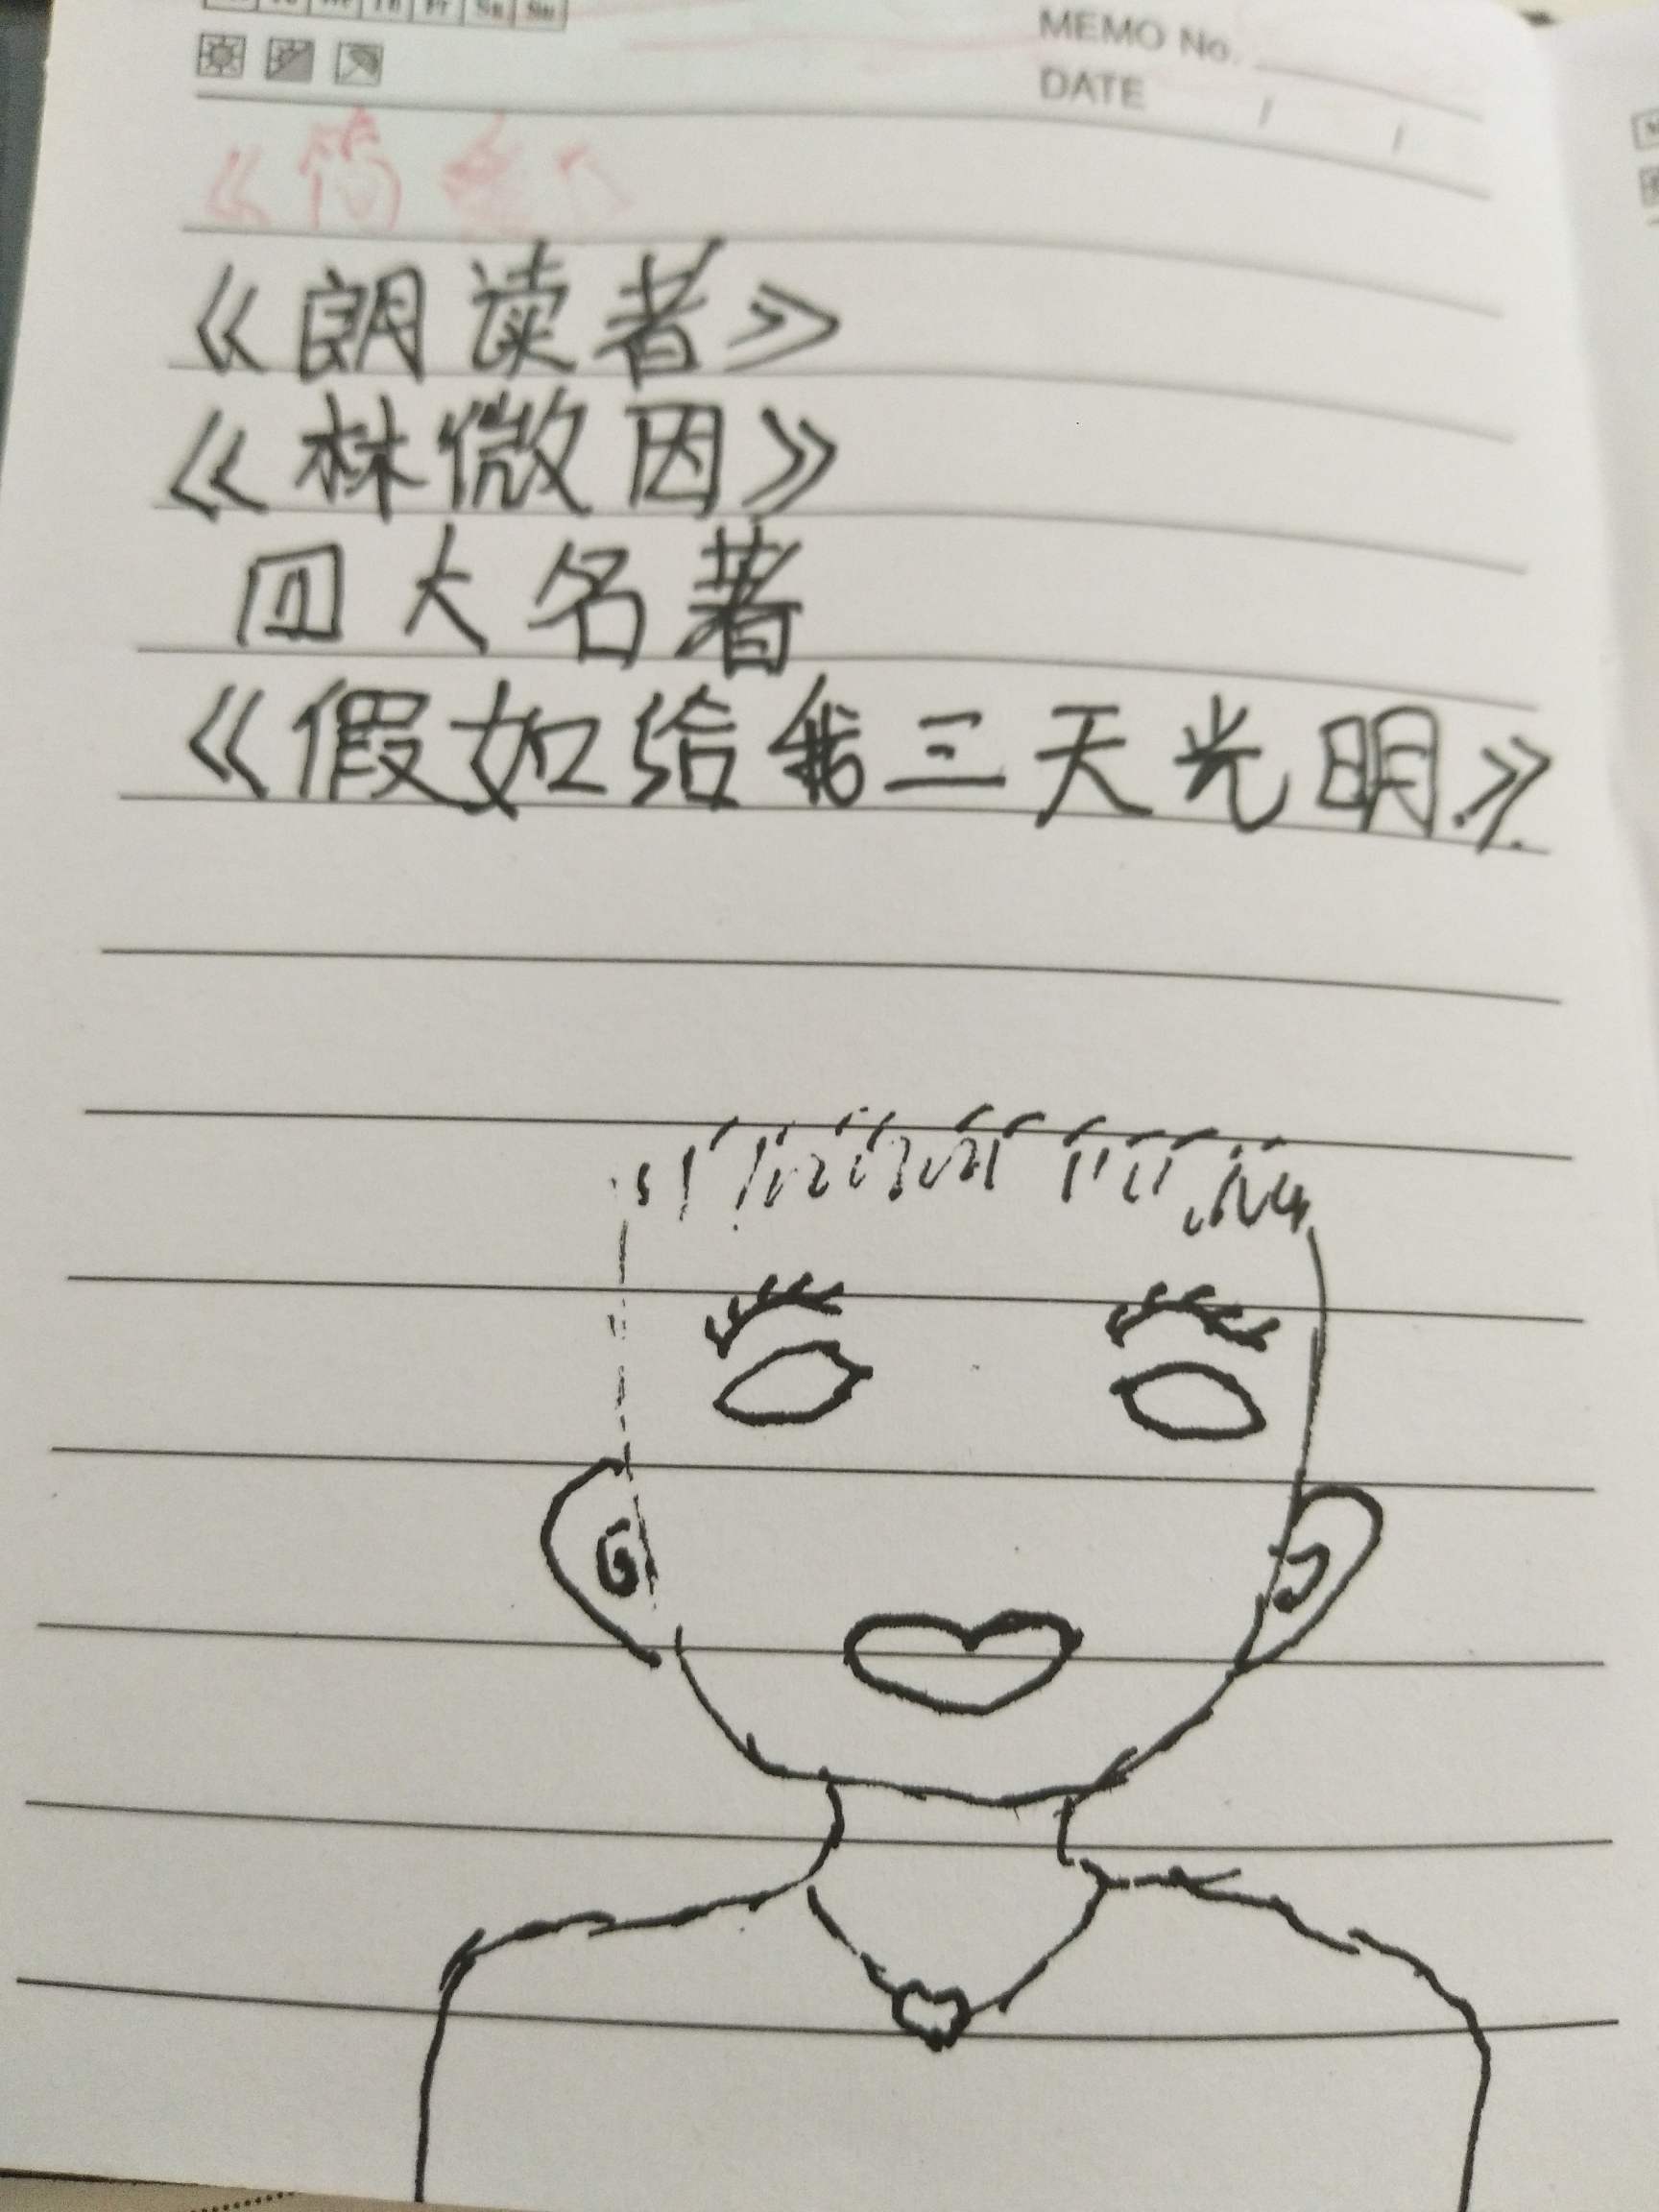 MEMO No.
DATE / /
《朗读者》
《林微因》
四大名著
《假如给我三天光明》